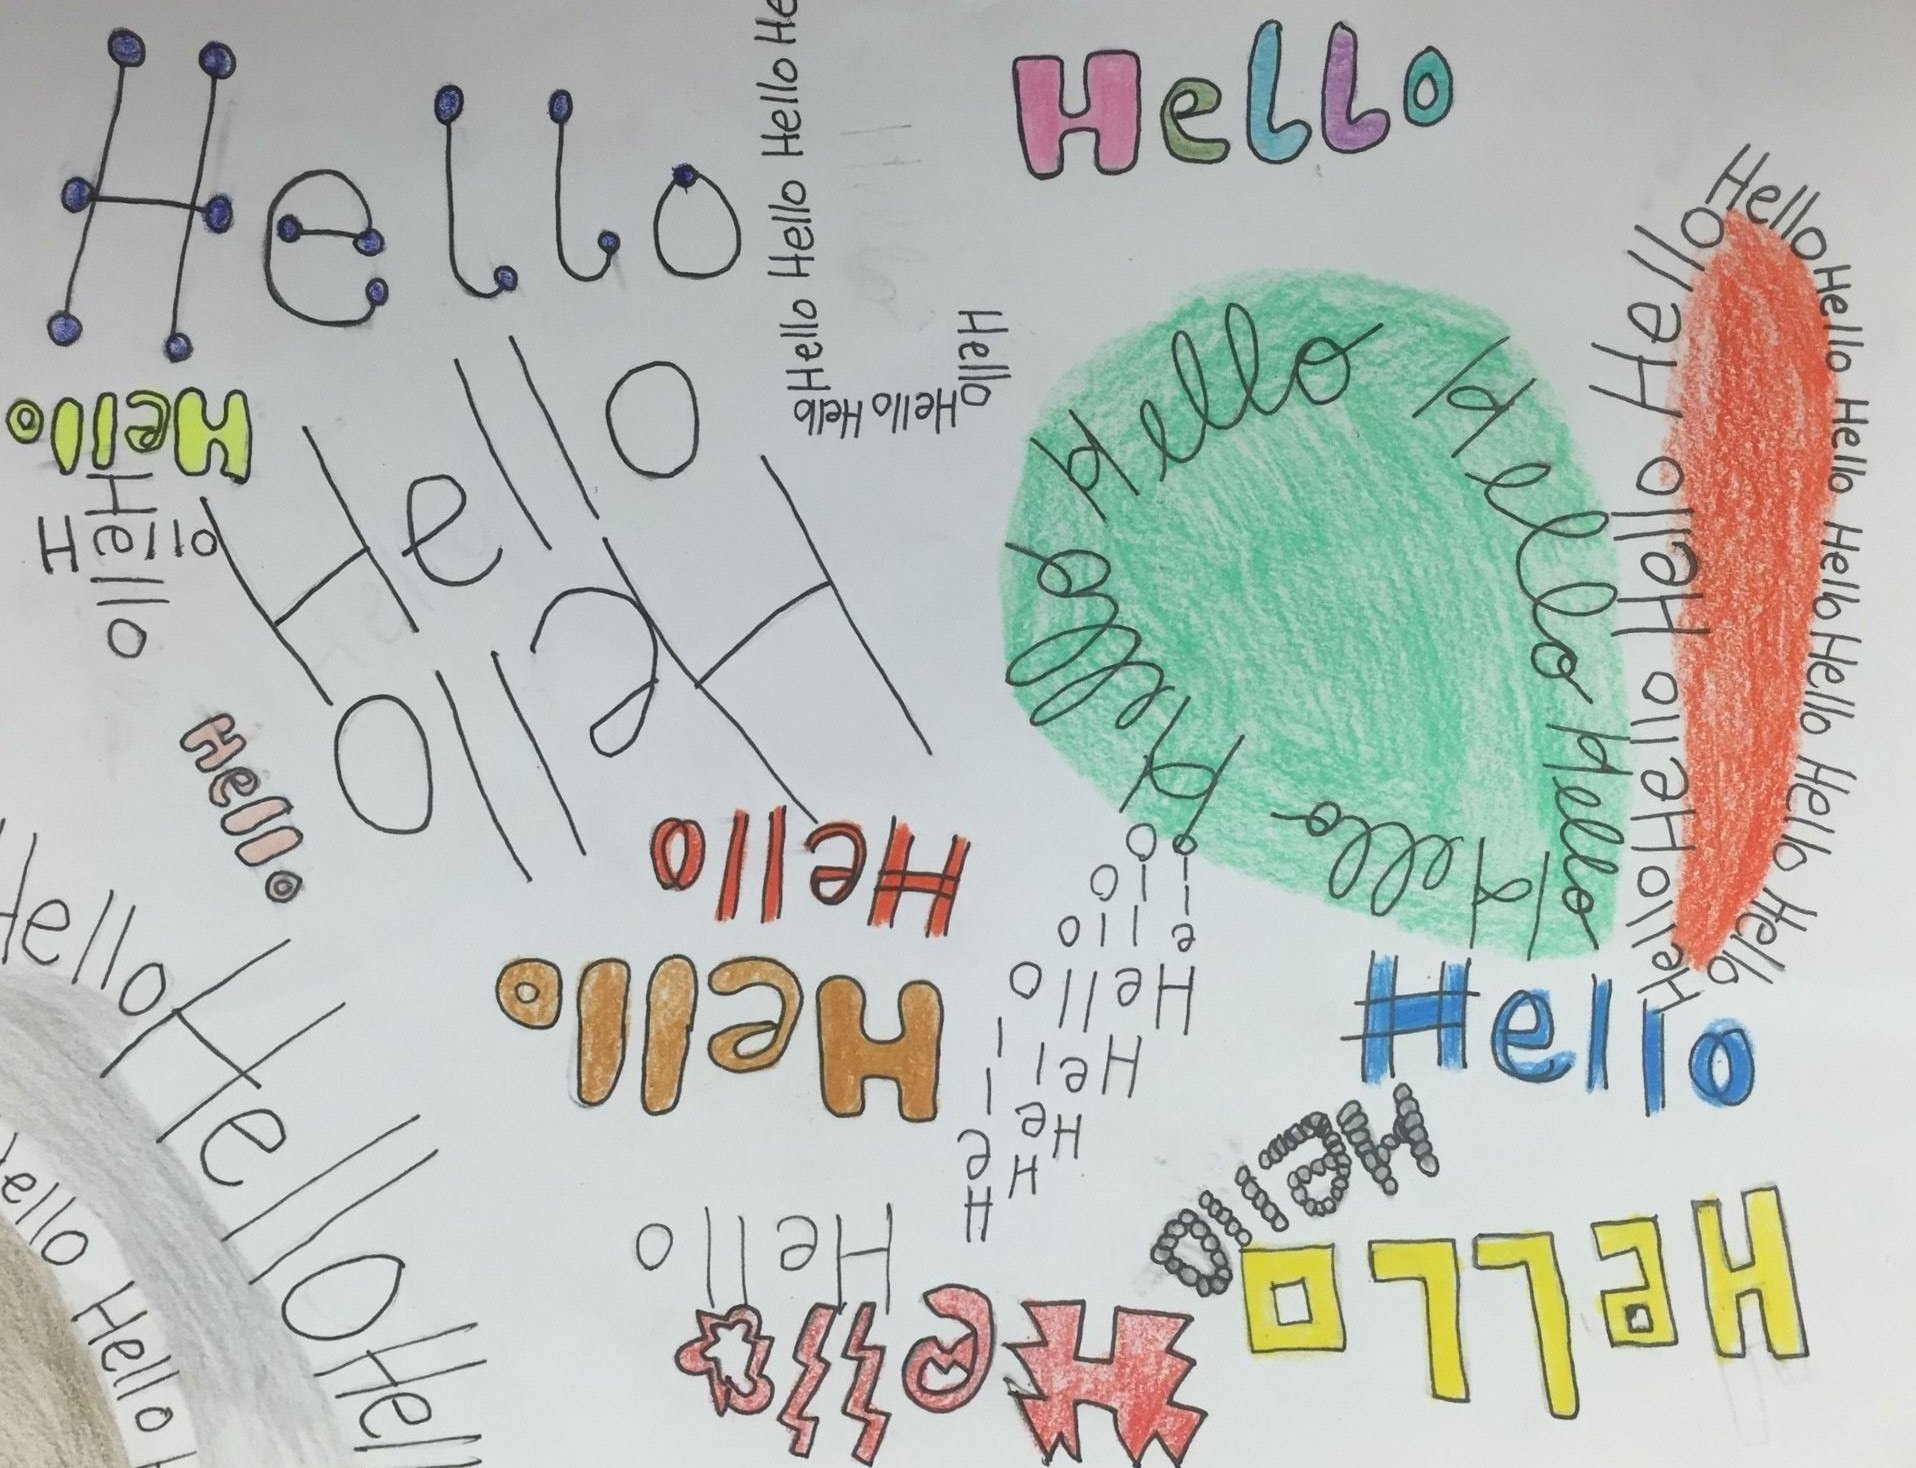 Hello
Hello Hello Hello Hello He
Hello
Hello
Hello
Hello Hello
Hello
Hello
Hello
Hello
Hello
Hello
Hello
Hello
Hello
Hello
Hello
Hello
Hello
Hello Hello Hello Hello Hello Hello Hello Hello
Hello
Hello
Hello
Hello
Hello
Hello
Hello
Hel
He
H
Hello
Hello
Hello
Hello
ello
Hello
Hell
ello
Hello
H
Hello
Hello
Hello